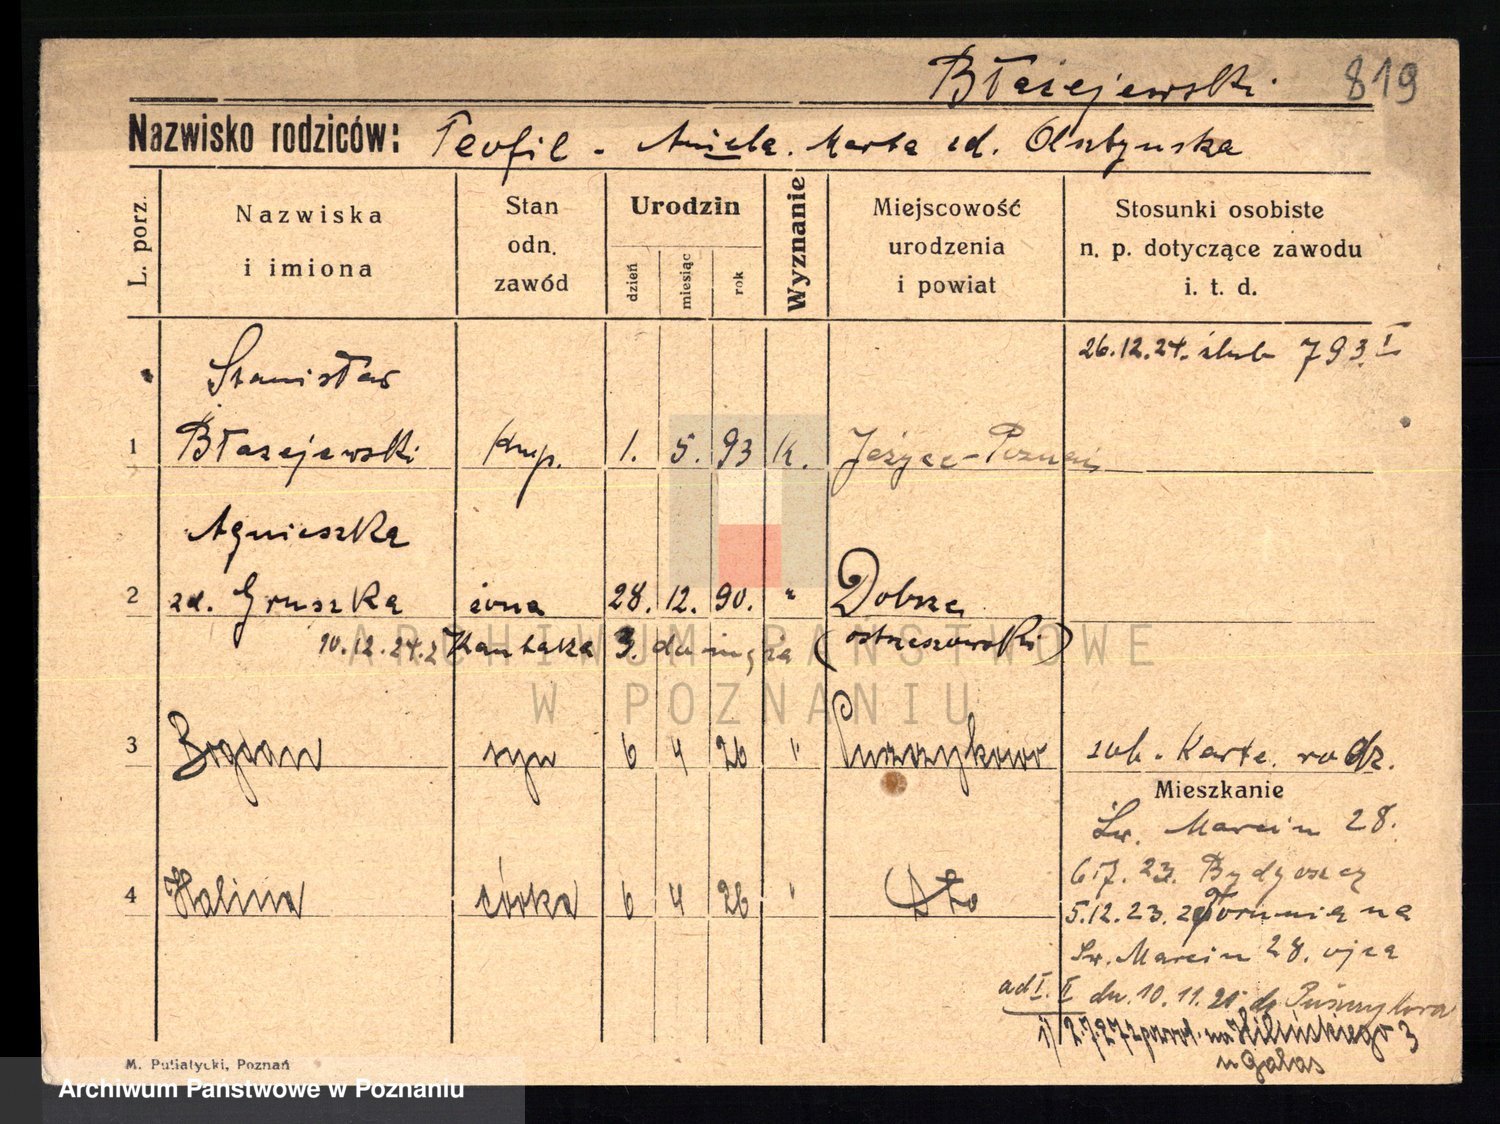 Błażejewski 819
Nazwisko rodziców: Teofil - Aniela. Marta zd. Olsztyńska
L. porz.
Nazwiska i imiona
Stan odn. zawód
Urodzin
dzień miesiąc rok
Wyznanie
Miejscowość urodzenia i powiat
Stosunki osobiste n. p. dotyczące zawodu i. t. d.
26.12.24. ślub 793.I
Stanisław
1 Błażejewski kup. 1. 5. 93 k. Jeżyce-Poznań
Agnieszka
2 zd. Gruszka żona 28. 12. 90. " Dobrze
10.12.24. z Kantaka 3. do męża (ostrzeszowski)
3 Bogdan syn 6 4 26 " Puszczykowo zob. Kartę rodz.
Mieszkanie
Św. Marcin 28.
4 Halina córka 6 4 26 " Dto
6.7.23. Bydgoszcz
5.12.23. z Torunia na
Św. Marcin 28. ojca
ad I. II dn. 10.11.25 do Puszczykowa
1) 2.7.27 z powr. na 3
u Galas
M. Putiatycki, Poznań
ARCHIWUM PAŃSTWOWE
W POZNANIU
Archiwum Państwowe w Poznaniu